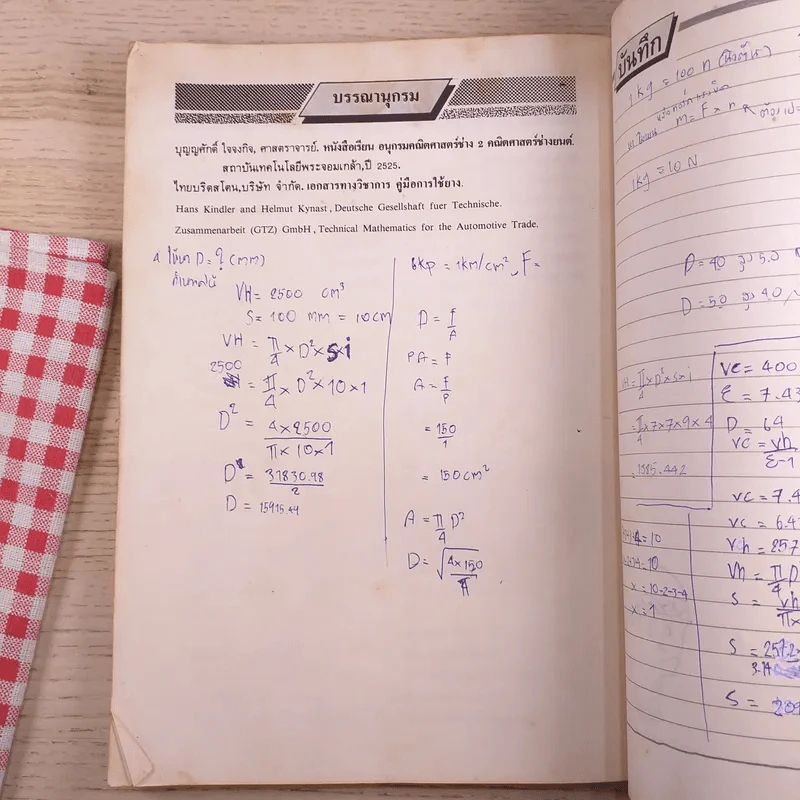 บรรณานุกรม
บุญญศักดิ์ ใจจงกิจ, ศาสตราจารย์. หนังสือเรียน อนุกรมคณิตศาสตร์ช่าง 2 คณิตศาสตร์ช่างยนต์.
สถาบันเทคโนโลยีพระจอมเกล้า,ปี 2525.
ไทยบริดสโตน,บริษัท จำกัด. เอกสารทางวิชาการ คู่มือการใช้ยาง.
Hans Kindler and Helmut Kynast, Deutsche Gesellshaft fuer Technische.
Zusammenarbeit (GTZ) GmbH, Technical Mathematics for the Automotive Trade.
D = ? (mm)
VH = 2500 cm³
S = 100 mm = 10 cm
VH = π/4 × D² × s × i
2500 = π/4 × D² × 10 × 1
D² = 4×2500 / π×10×1
= 31830.98 / 2
D = 15915.49
6kp = 1km/cm², F =
D = F/A
PA = F
A = F/P
= 150/1
= 150 cm²
A = π/4 D²
D = √4×150/π
บันทึก
1 kg = 100 n
m = F × n
1kg = 10 N
D = 40
D = 50
π/4 × D² × s × i
= π/4 × 7 × 7 × 9 × 4
1385.442
= 10
= 10
x = 10-2-3-4
x = 1
vc = 400
ε = 7.43
D = 64
vc = vh / ε-1
vc = 7.4
vc = 6.4
vh = 257
Vh = π/4
s = vh
s = 257.2
3.14
s =